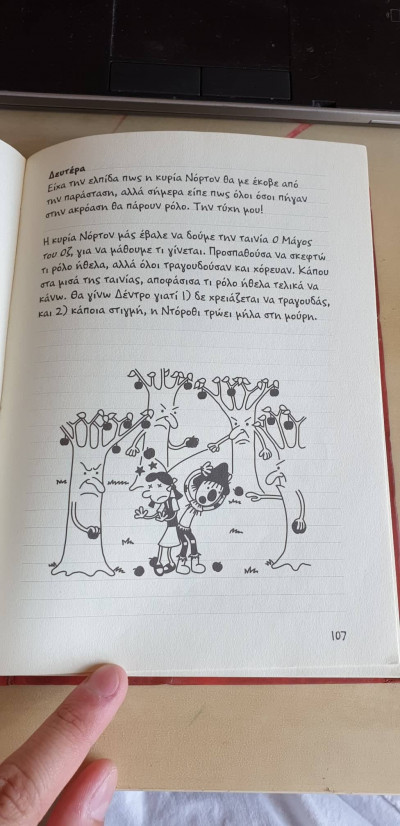 Δευτέρα
Είχα την ελπίδα πως η κυρία Νόρτον θα με έκοβε από
την παράσταση, αλλά σήμερα είπε πως όλοι όσοι πήγαν
στην ακρόαση θα πάρουν ρόλο. Την τύχη μου!
Η κυρία Νόρτον μάς έβαλε να δούμε την ταινία Ο Μάγος
του Οζ, για να μάθουμε τι γίνεται. Προσπαθούσα να σκεφτώ
τι ρόλο ήθελα, αλλά όλοι τραγουδούσαν και χόρευαν. Κάπου
στα μισά της ταινίας, αποφάσισα τι ρόλο ήθελα τελικά να
κάνω. Θα γίνω Δέντρο γιατί 1) δε χρειάζεται να τραγουδάς,
και 2) κάποια στιγμή, η Ντόροθι τρώει μήλα στη μούρη.
107